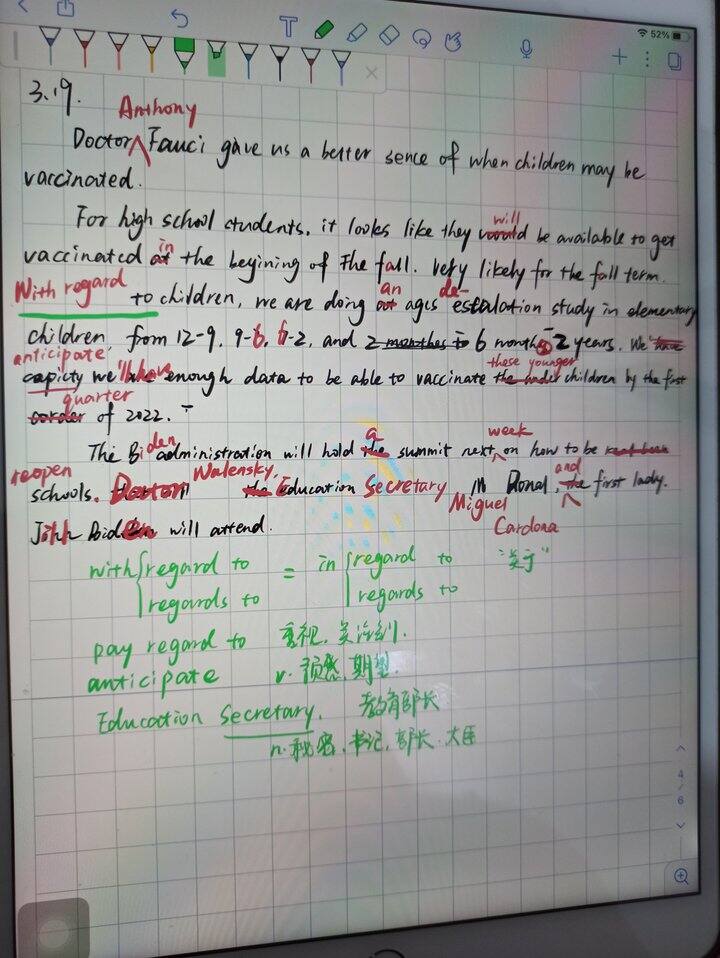 52%
3.19.
Anthony
Doctor Fauci gave us a better sence of when children may be
vaccinated.
will
For high school students, it looks like they would be available to get
in
vaccinated at the beyining of the fall. Very likely for the fall term.
With regard an de-
to children, we are doing ages escalation study in elementary
children, from 12-9, 9-6, 6-2, and 2 monthes to 6 months 2 years. We have
anticipate these younger
capicty we'll have enough data to be able to vaccinate the under children by the first
quarter
of 2022.
a week
The Biden administration will hold the summit next on how to be
reopen Walensky, and
schools. Doctor the Education Secretary Donal, the first lady.
Miguel
Cardona
Jill Biden will attend.
with regard to = in regard to "关于"
regards to regards to
pay regard to 重视,关注到.
anticipate v. 预感,期望.
Education Secretary. 教育部长
n. 秘密,书记,部长,大臣
4
/
6